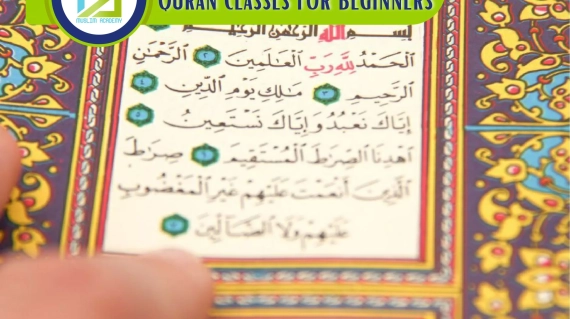 QURAN CLASSES FOR BEGINNERS
MUSLIM ACADEMY
بِسْمِ ٱللَّهِ ٱلرَّحْمَٰنِ ٱلرَّحِيمِ
ٱلْحَمْدُ لِلَّهِ رَبِّ ٱلْعَٰلَمِينَ ٢ ٱلرَّحْمَٰنِ
ٱلرَّحِيمِ ٣ مَٰلِكِ يَوْمِ ٱلدِّينِ ٤
إِيَّاكَ نَعْبُدُ وَإِيَّاكَ نَسْتَعِينُ ٥
ٱهْدِنَا ٱلصِّرَٰطَ ٱلْمُسْتَقِيمَ ٦ صِرَٰطَ
ٱلَّذِينَ أَنْعَمْتَ عَلَيْهِمْ غَيْرِ ٱلْمَغْضُوبِ
عَلَيْهِمْ وَلَا ٱلضَّآلِّينَ ٧